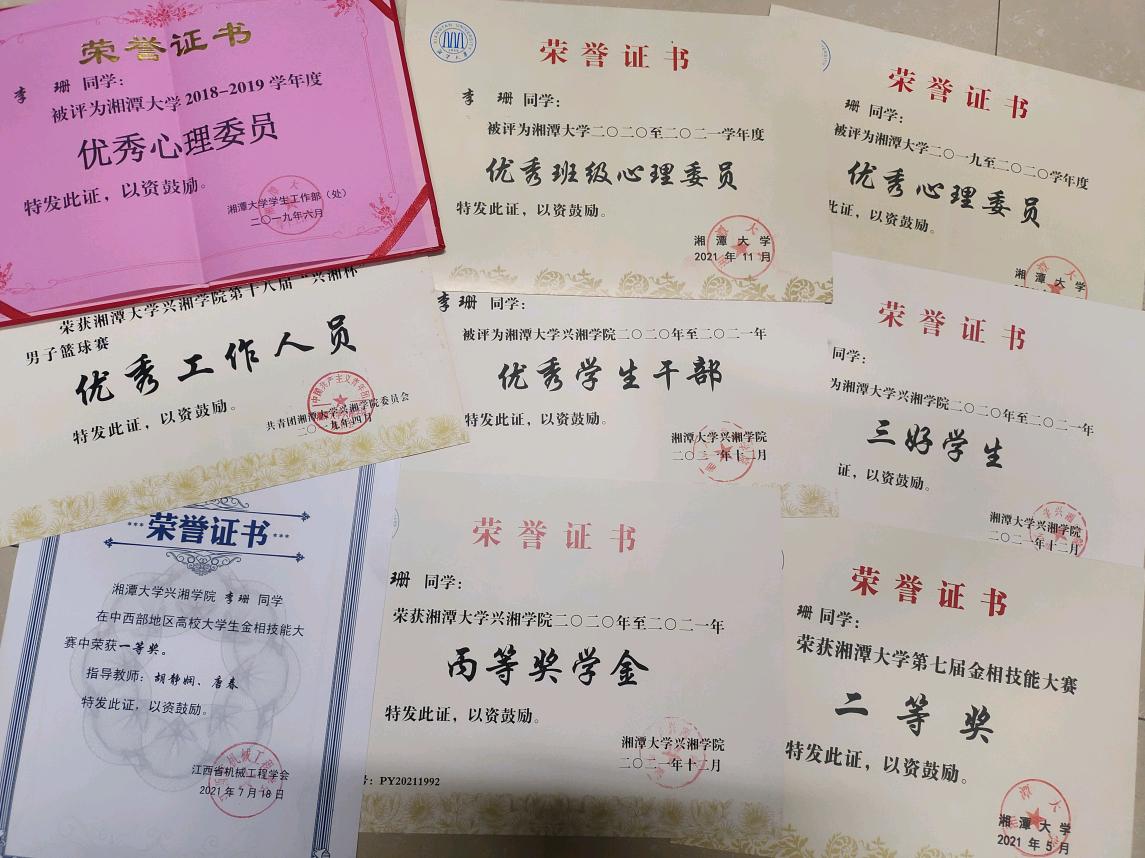 荣誉证书
李 珊 同学：
被评为湘潭大学2018-2019学年度
优秀心理委员
特发此证，以资鼓励。
湘潭大学学生工作部（处）
二〇一九年六月
荣誉证书
李 珊 同学：
被评为湘潭大学二〇二〇至二〇二一学年度
优秀班级心理委员
特发此证，以资鼓励。
湘潭大学
2021年11月
荣誉证书
珊 同学：
被评为湘潭大学二〇一九至二〇二〇学年度
优秀心理委员
此证，以资鼓励。
湘潭大学
荣获湘潭大学兴湘学院第十八届“兴湘杯
男子篮球赛
优秀工作人员
特发此证，以资鼓励。
共青团湘潭大学兴湘学院委员会
二〇一九年四月
李珊 同学：
被评为湘潭大学兴湘学院二〇二〇年至二〇二一年
优秀学生干部
特发此证，以资鼓励。
湘潭大学兴湘学院
二〇二一年十二月
荣誉证书
同学：
为湘潭大学兴湘学院二〇二〇年至二〇二一年
三好学生
证，以资鼓励。
湘潭大学兴湘学院
二〇二一年十二月
荣誉证书
湘潭大学兴湘学院 李珊 同学
在中西部地区高校大学生金相技能大
赛中荣获一等奖。
指导教师：胡静娴、唐春
特发此证，以资鼓励。
江西省机械工程学会
2021年7月18日
荣誉证书
珊 同学：
荣获湘潭大学兴湘学院二〇二〇年至二〇二一年
丙等奖学金
特发此证，以资鼓励。
湘潭大学兴湘学院
二〇二一年十二月
号：PY20211992
荣誉证书
珊 同学：
荣获湘潭大学第七届金相技能大赛
二等奖
特发此证，以资鼓励。
湘潭大学
2021年5月